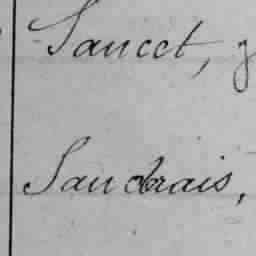 Saucet,
Saudrais,